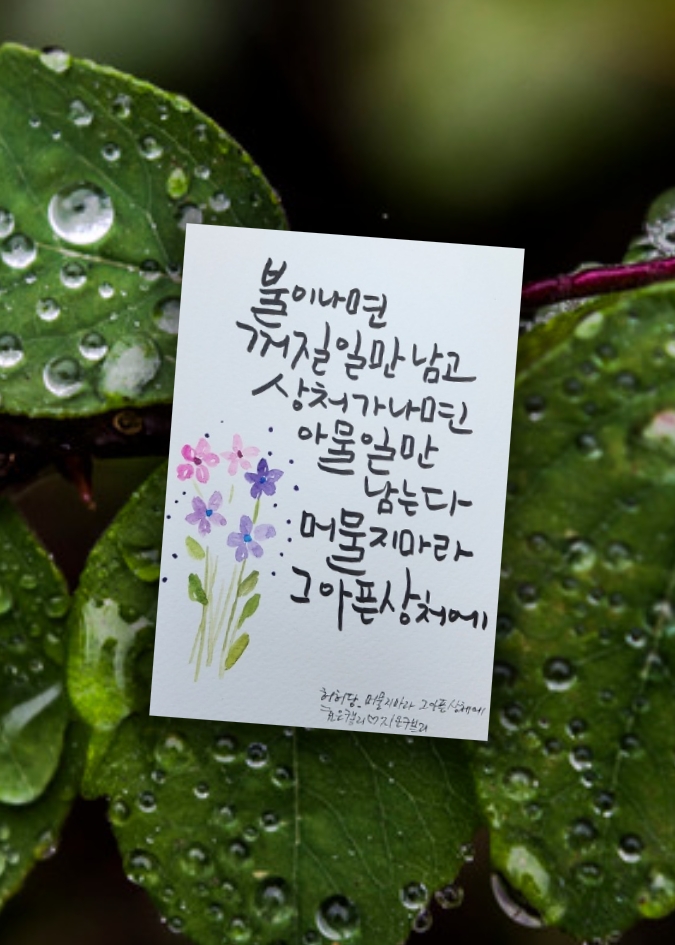 불이나면
꺼질일만남고
상처가나면
아물일만
남는다
머물지마라
그아픈상처에
허허당_머물지마라 그아픈상처에